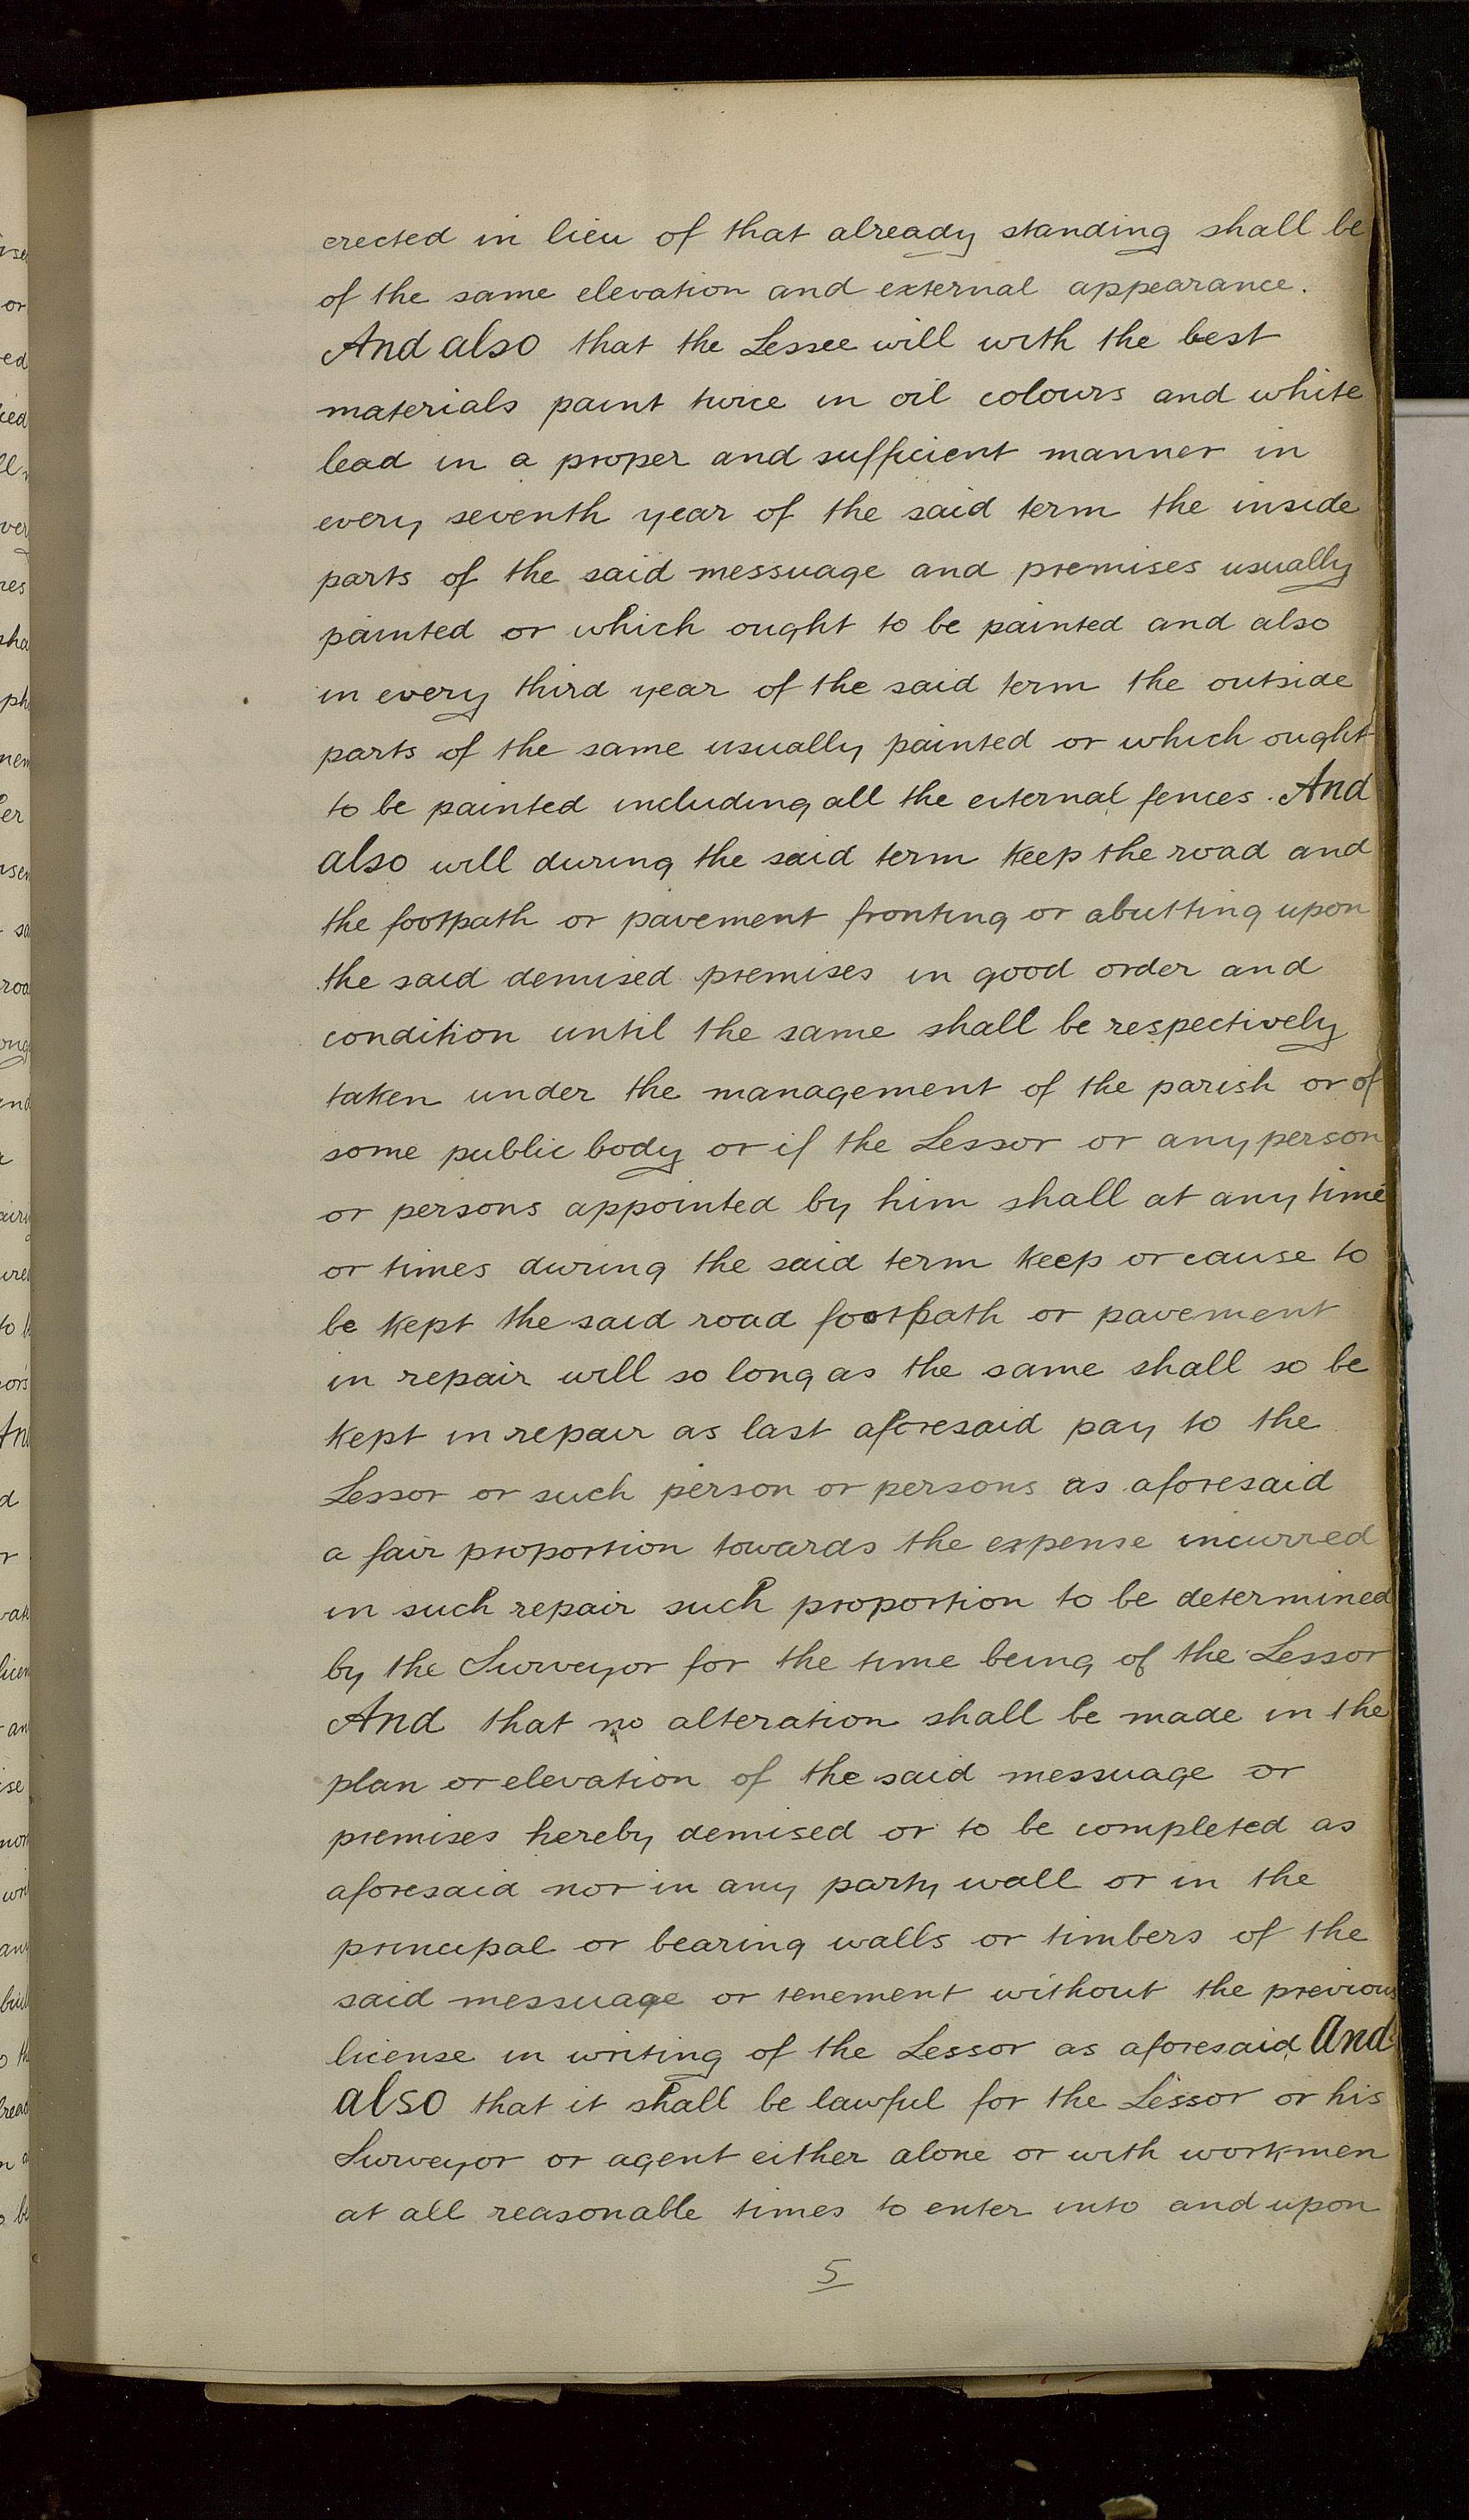 erected in lieu of that already standing shall be
of the same elevation and external appearance.
And also that the Lessee will with the best
materials paint twice in oil colours and white
lead in a proper and sufficient manner in
every seventh year of the said term the inside
parts of the said messuage and premises usually
painted or which ought to be painted and also
in every third year of the said term the outside
parts of the same usually painted or which ought
to be painted including all the external fences. And
also will during the said term keep the road and
the footpath or pavement fronting or abutting upon
the said demised premises in good order and
condition until the same shall be respectively
taken under the management of the parish or of
some public body or if the Lessor or any person
or persons appointed by him shall at any time
or times during the said term keep or cause to
be kept the said road footpath or pavement
in repair will so long as the same shall so be
kept in repair as last aforesaid pay to the
Lessor or such person or persons as aforesaid
a fair proportion towards the expense incurred
in such repair such proportion to be determined
by the Surveyor for the time being of the Lessor
And that no alteration shall be made in the
plan or elevation of the said messuage or
premises hereby demised or to be completed as
aforesaid nor in any party wall or in the
principal or bearing walls or timbers of the
said messuage or tenement without the previous
license in writing of the Lessor as aforesaid And
also that it shall be lawful for the Lessor or his
Surveyor or agent either alone or with workmen
at all reasonable times to enter into and upon
5